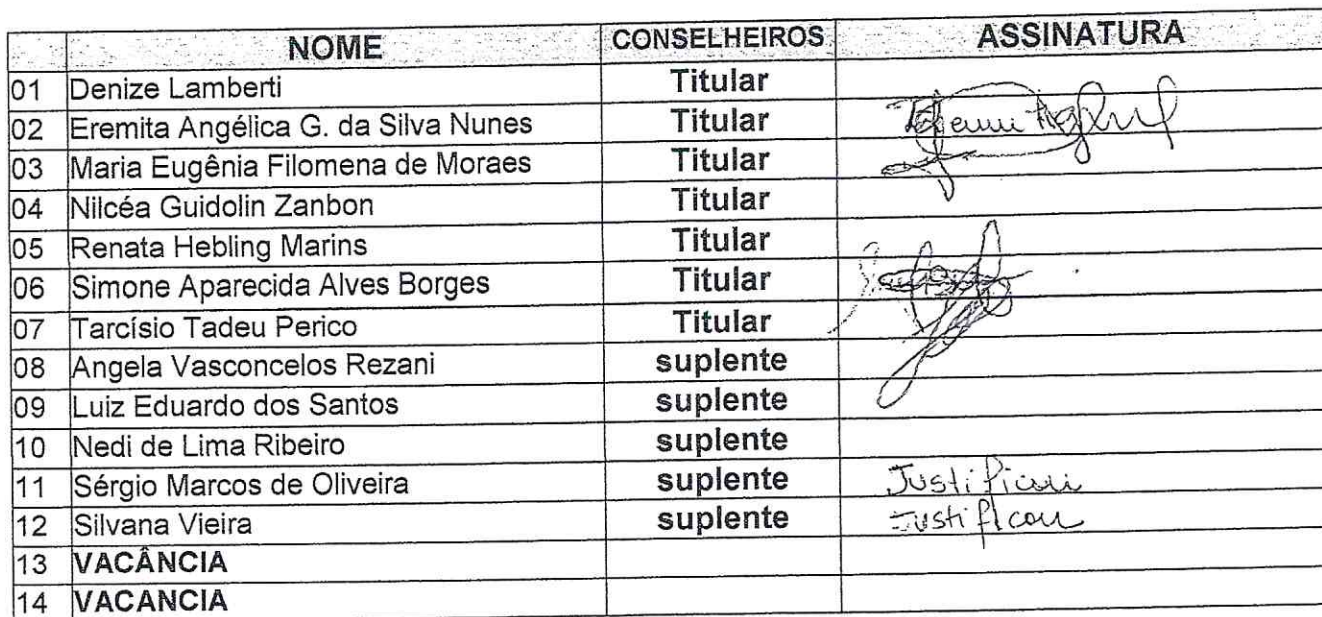 NOME CONSELHEIROS ASSINATURA
01 Denize Lamberti Titular
02 Eremita Angélica G. da Silva Nunes Titular
03 Maria Eugênia Filomena de Moraes Titular
04 Nilcéa Guidolin Zanbon Titular
05 Renata Hebling Marins Titular
06 Simone Aparecida Alves Borges Titular
07 Tarcísio Tadeu Perico Titular
08 Angela Vasconcelos Rezani suplente
09 Luiz Eduardo dos Santos suplente
10 Nedi de Lima Ribeiro suplente
11 Sérgio Marcos de Oliveira suplente
12 Silvana Vieira suplente Justificou
13 VACÂNCIA
14 VACANCIA